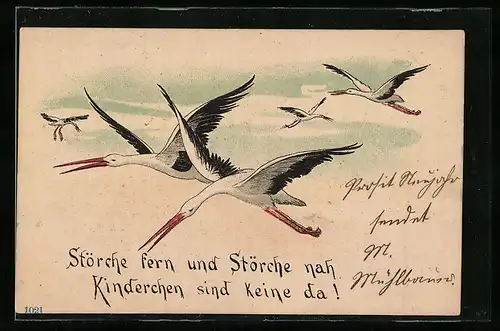 Störche fern und Störche nah
Kinderchen sind keine da!
Prosit Neujahr
sendet
M.
Mühlbauer.
1021